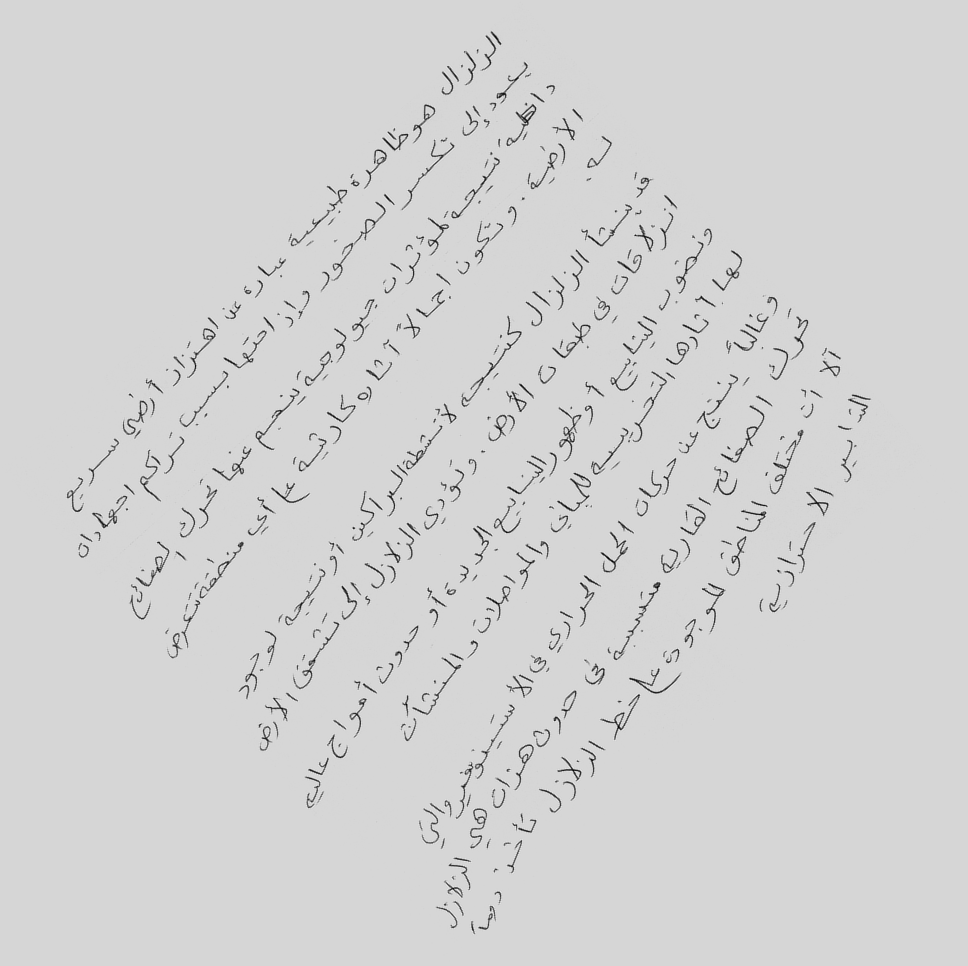 الزلزال هو ظاهرة طبيعية عبارة عن اهتزاز أرضي سريع
يعود إلى تكسر الصخور وإزاحتها بسبب تراكم اجهادات
داخلية نتيجة لمؤثرات جيولوجية ينجم عنها تحرك الصفائح
الأرضية . وتكون اجمالاً آثاره كارثية على أي منطقة تتعرض
له
قد ينشأ الزلزال كنتيجه لأنشطة البراكين أو نتيجة لوجود
انزلاقات في طبقات الأرض . وتؤدي الزلازل إلى تشقق الأرض
ونضوب الينابيع أو ظهور الينابيع الجديدة أو حدوث أمواج عاليه
لها آثارها التخريبيه للمباني والمواصلات والمنشآت
وغالباً ينتج عن حركات الحمل الحراري في الأستينوسفير والتي
تحرك الصفائح القاريه متسببة في حدوث هزات هي الزلازل
آلا أن مختلف المناطق الموجودة على خط الزلازل تأخذ دوماً
التدابير الاحترازية